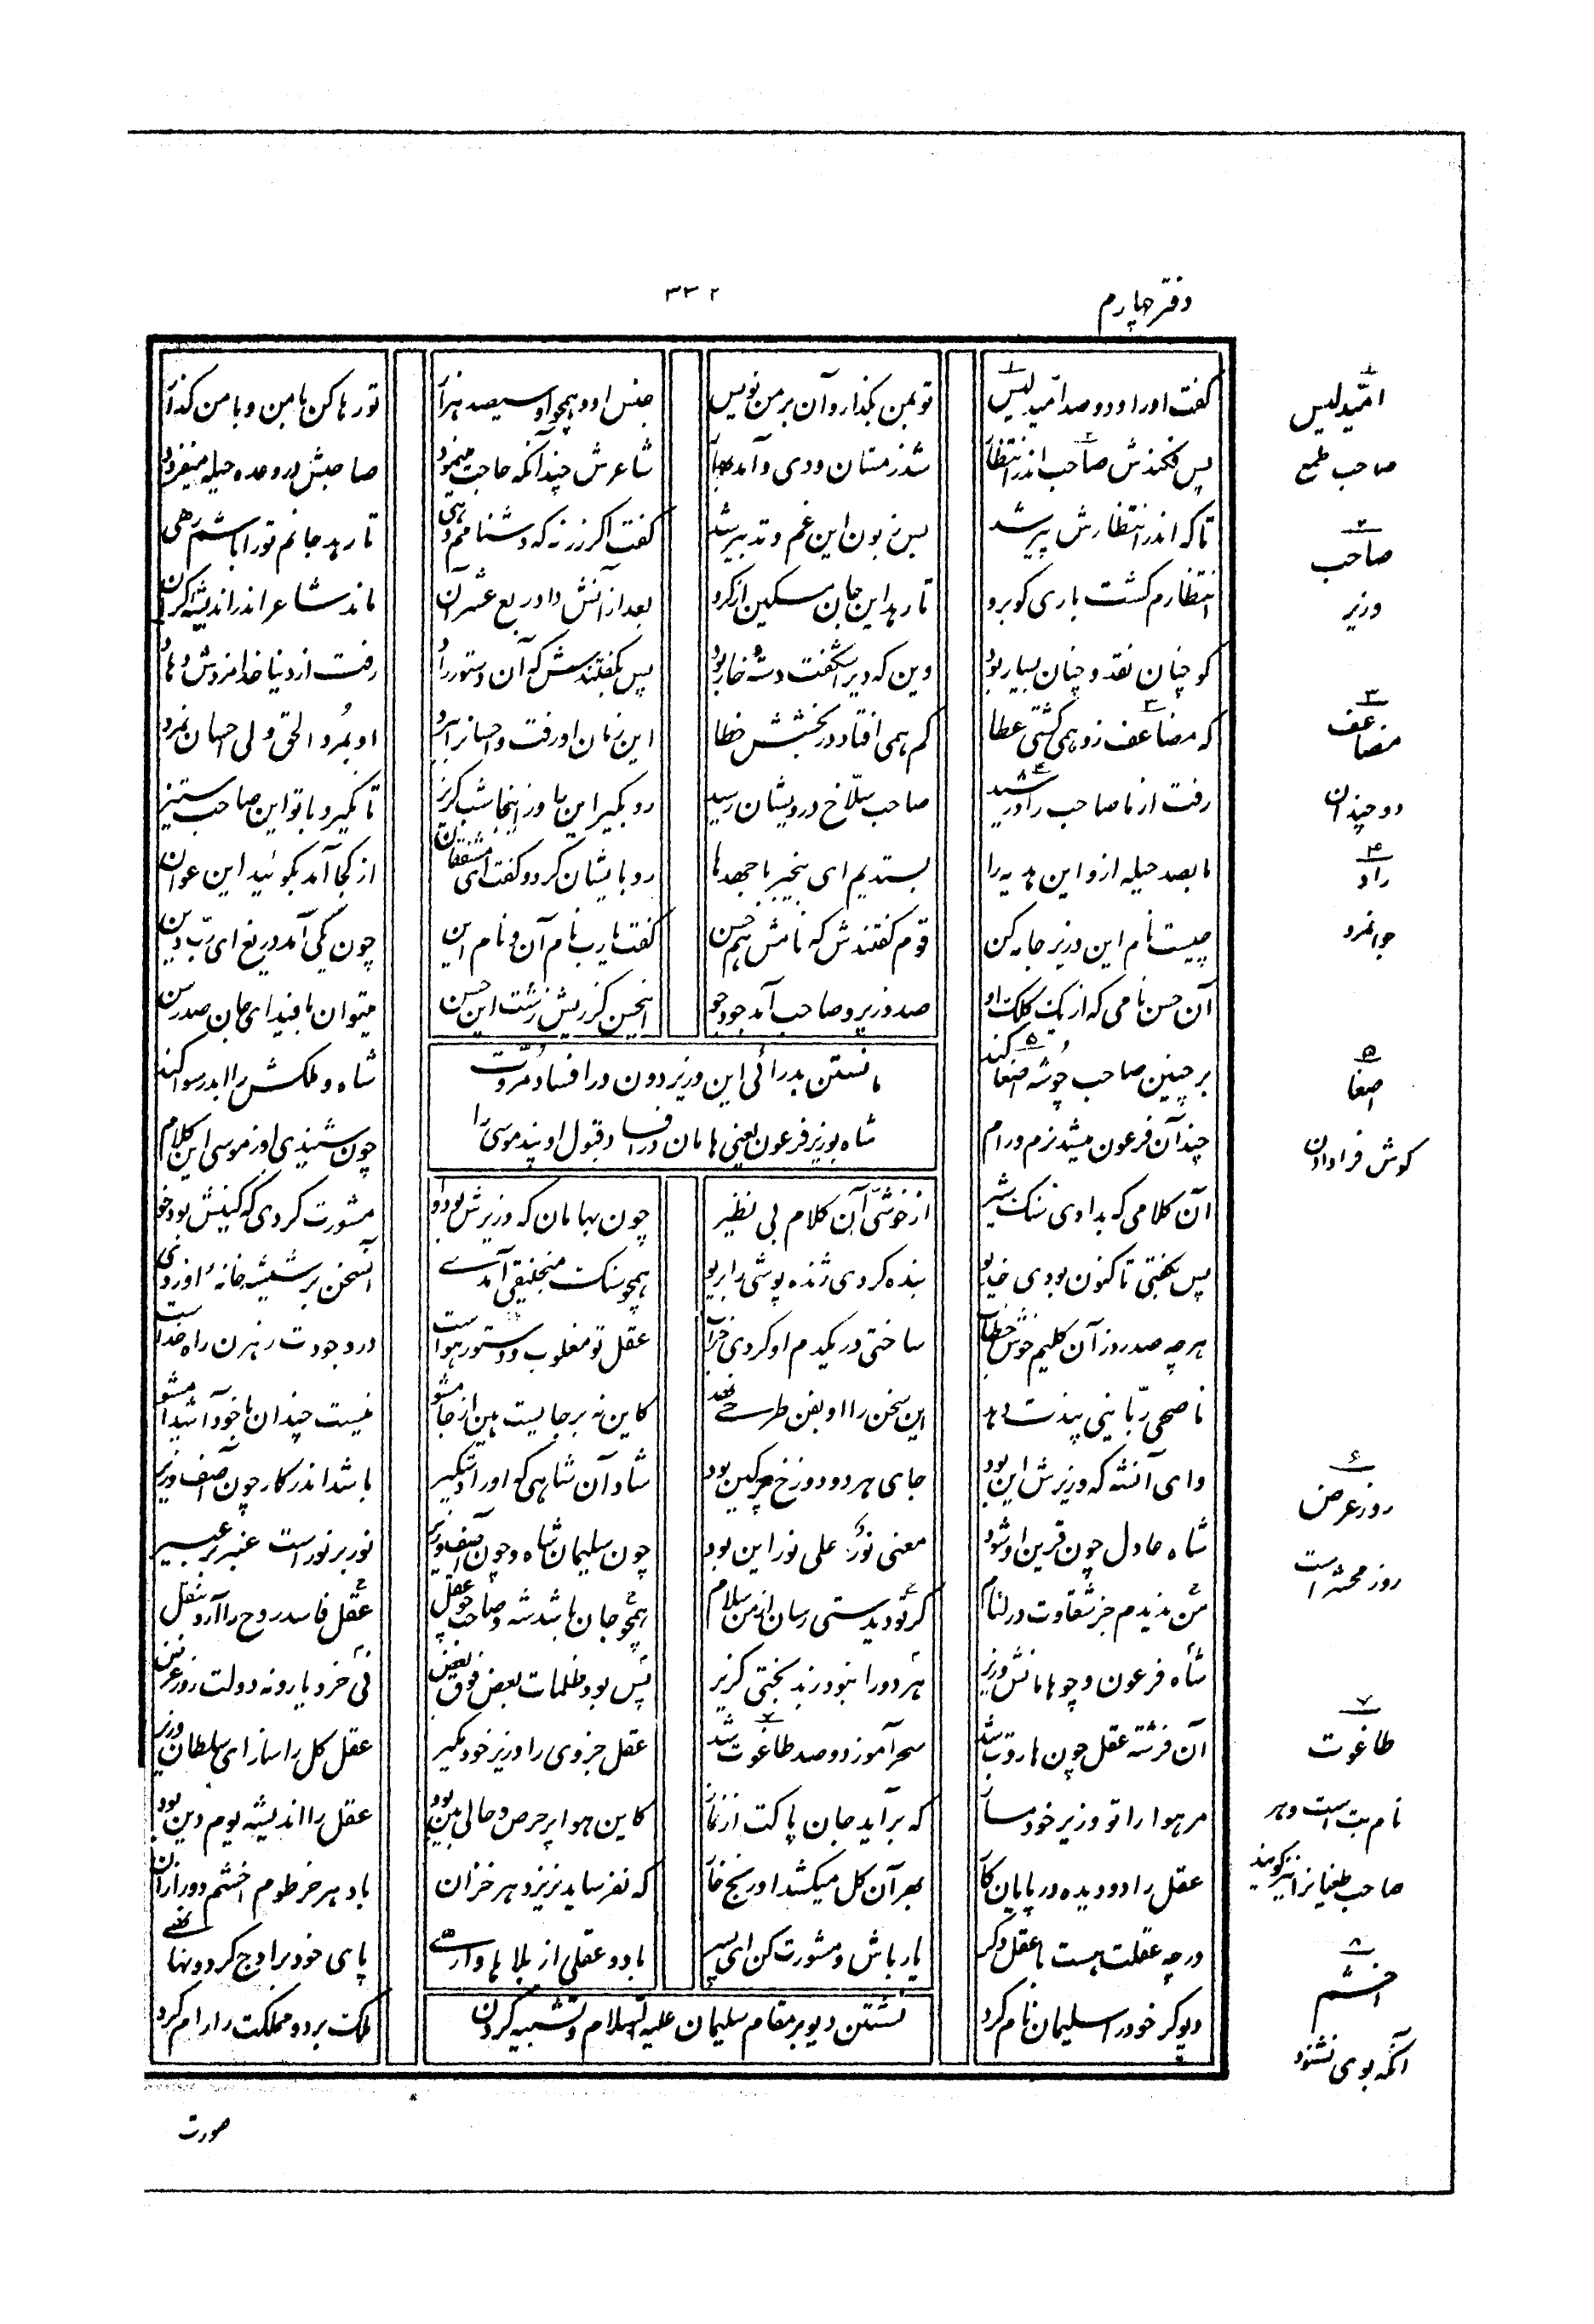 دفتر چهارم
۳۳۲
گفت او را و دو صد امید لیس تو بمن بگذار و آن بر من نویس جنس او و همچو او سیصد هزار تو رها کن با من و با من گذار
پس فکندش صاحب اندر انتظار شد زمستان و دی و آمد بهار شاعرش چندانکه حاجت مینمود صاحبش در وعده حیله میفزود
تا که اندر انتظارش پیر شد پس زبون این غم و تدبیر شد گفت اگر زر نه که دشنامم دهی تا رهد جانم تو را باشم رهی
انتظارم کشت باری گو برو تا رهد این جان مسکین از گرو بعد از آنش داد ربع عشر آن ماند شاعر اندر اندیشه گران
کو چنان نقد و چنان بسیار بود وین که دیر اشکفت دسته خار بود پس بگفتندش که آن دستور راد رفت از دنیا خدا مزدش دهاد
که مضاعف زو همی گشتی عطا کم همی افتاد در بخشش خطا این زمان او رفت و احسانرا ببرد او نمرد الحق ولی احسان نمرد
رفت از ما صاحب راد رشید صاحب سلاخ درویشان رسید رو بگیر این را وز اینجا شب گریز تا نگیرد با تو این صاحب ستیز
ما بصد حیله ازو این هدیه را بستدیم ای بیخبر با جهدها رو بایشان کرد و گفت ای مشفقان از کجا آمد بگوئید این عوان
چیست نام این وزیر جامه کن قوم گفتندش که نامش هم حسن گفت یا رب نام آن و نام این چون یکی آمد دریغ ای رب دین
آن حسن نامی که از یک کلک او صد وزیر و صاحب آمد جود جو این حسن کز ریش زشت این حسن میتوان بافید ای جان صد رسن
بر چنین صاحب چو شه اصغا کند شاه و ملکش را ابد رسوا کند
مانستن بد رائی این وزیر دون در افساد مروت
شاه بوزیر فرعون یعنی هامان در افساد قبول او پند موسی را
چند آن فرعون میشد نرم و رام چون شنیدی او ز موسی این کلام
آن کلامی که بدادی سنگ شیر از خوشی آن کلام بی نظیر چون بهامان که وزیرش بود او مشورت کردی که کینش بود خو
پس بگفتی تا کنون بودی خدیو بنده کردی ژنده پوشی را بریو همچو سنگ منجنیقی آمدے آن سخن بر شیشه خانه او زدی
هر چه صد روز آن کلیم خوش خطاب ساختی در یکدم او کردی خراب عقل تو مغلوب دستور هواست در وجودت رهزن راه خداست
ناصحی ربانیی پندت دهد این سخن را او بفن طرحی نهد کاین نه بر جایست هین از جا مشو نیست چندان با خود آ شیدا مشو
وای آنشه که وزیرش این بود جای هر دو دوزخ پر کین بود شاد آن شاهی که او را دستگیر باشد اندر کار چون آصف وزیر
شاه عادل چون قرین او شود معنی نور علی نور این بود چون سلیمان شاه و چون آصف وزیر نور بر نور است عنبر بر عبیر
من ندیدم جز شقاوت در لئام گر تو دیدستی رسان از من سلام همچو جان باشد شه و صاحب چو عقل عقل فاسد روح را آرد بنقل
شاه فرعون و چو هامانش وزیر هر دو را نبود ز بدبختی گزیر پس بود ظلمات بعض فوق بعض نی خرد یار و نه دولت روز عرض
آن فرشته عقل چون هاروت شد سحر آموز دو صد طاغوت شد عقل جزوی را وزیر خود مگیر عقل کل را ساز ای سلطان وزیر
مر هوا را تو وزیر خود مساز که برآید جان پاکت از نماز کاین هوا پر حرص و حالی بین بود عقل را اندیشه یوم دین بود
عقل را دو دیده در پایان کار بهر آن گل میکشد او رنج خار که نفرساید نریزد در خزان باد هر خرطوم اخشم دور از آن
ور چه عقلت هست با عقل دگر یار باش و مشورت کن ای پسر با دو عقل از بلاها وارهے پای خود بر اوج گردونها نهے
نشستن دیو بر مقام سلیمان علیه السلام و تشبیه کردن
دیو گر خود را سلیمان نام کرد ملک برد و مملکت را رام کرد
۱
امید لیس
صاحب طمع
۲
صاحب
وزیر
۳
مضاعف
دو چندان
۴
راد
جوانمرد
۵
اصغا
گوش فرا دادن
۶
روز عرض
روز محشر است
۷
طاغوت
نام بت است و هر
صاحب طغیانرا نیز گویند
۸
اخشم
آنکه بوی نشنود
صورت